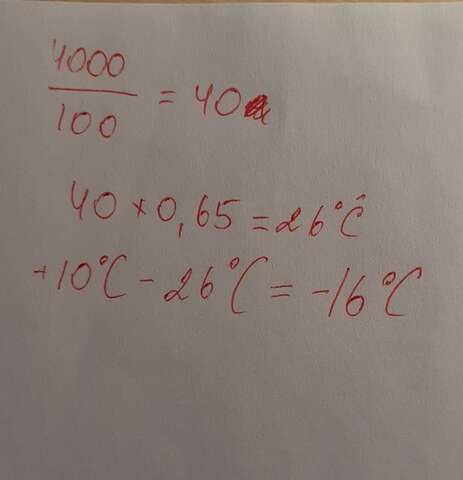 4000
100 = 40
40 × 0,65 = 26°C
+10°C - 26°C = -16°C